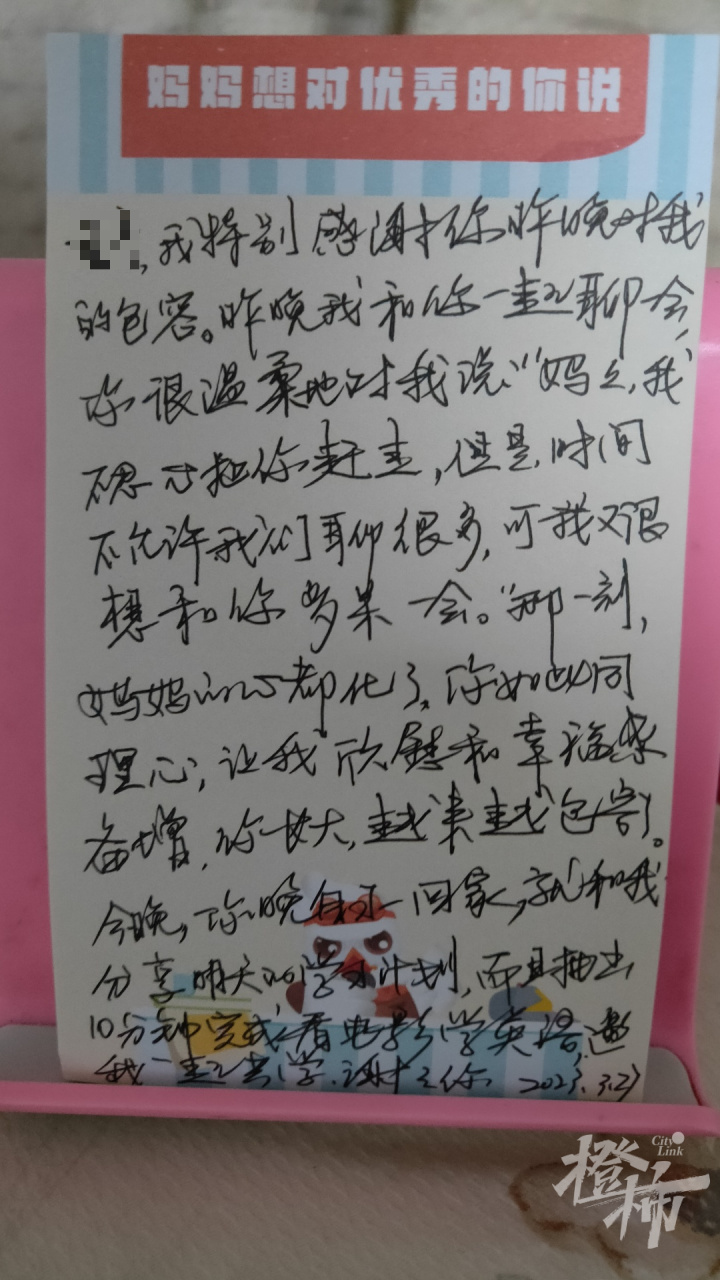 妈妈想对优秀的你说
,我特别感谢你昨晚对我
的包容。昨晚我和你一起聊会,
你很温柔地对我说:“妈妈,我
不忍心把你赶走,但是,时间
不允许我们聊很多,可我又很
想和你多呆一会。”那一刻,
妈妈的心都化了。你如此同
理心,让我欣慰和幸福感
备增,你长大,越来越包容了。
今晚,你晚自习一回家,就和我
分享明天的学习计划,而且抽出
10分钟完成看电影学英语,邀
我一起共学.谢谢你 2023.3.27
City Link
橙柿